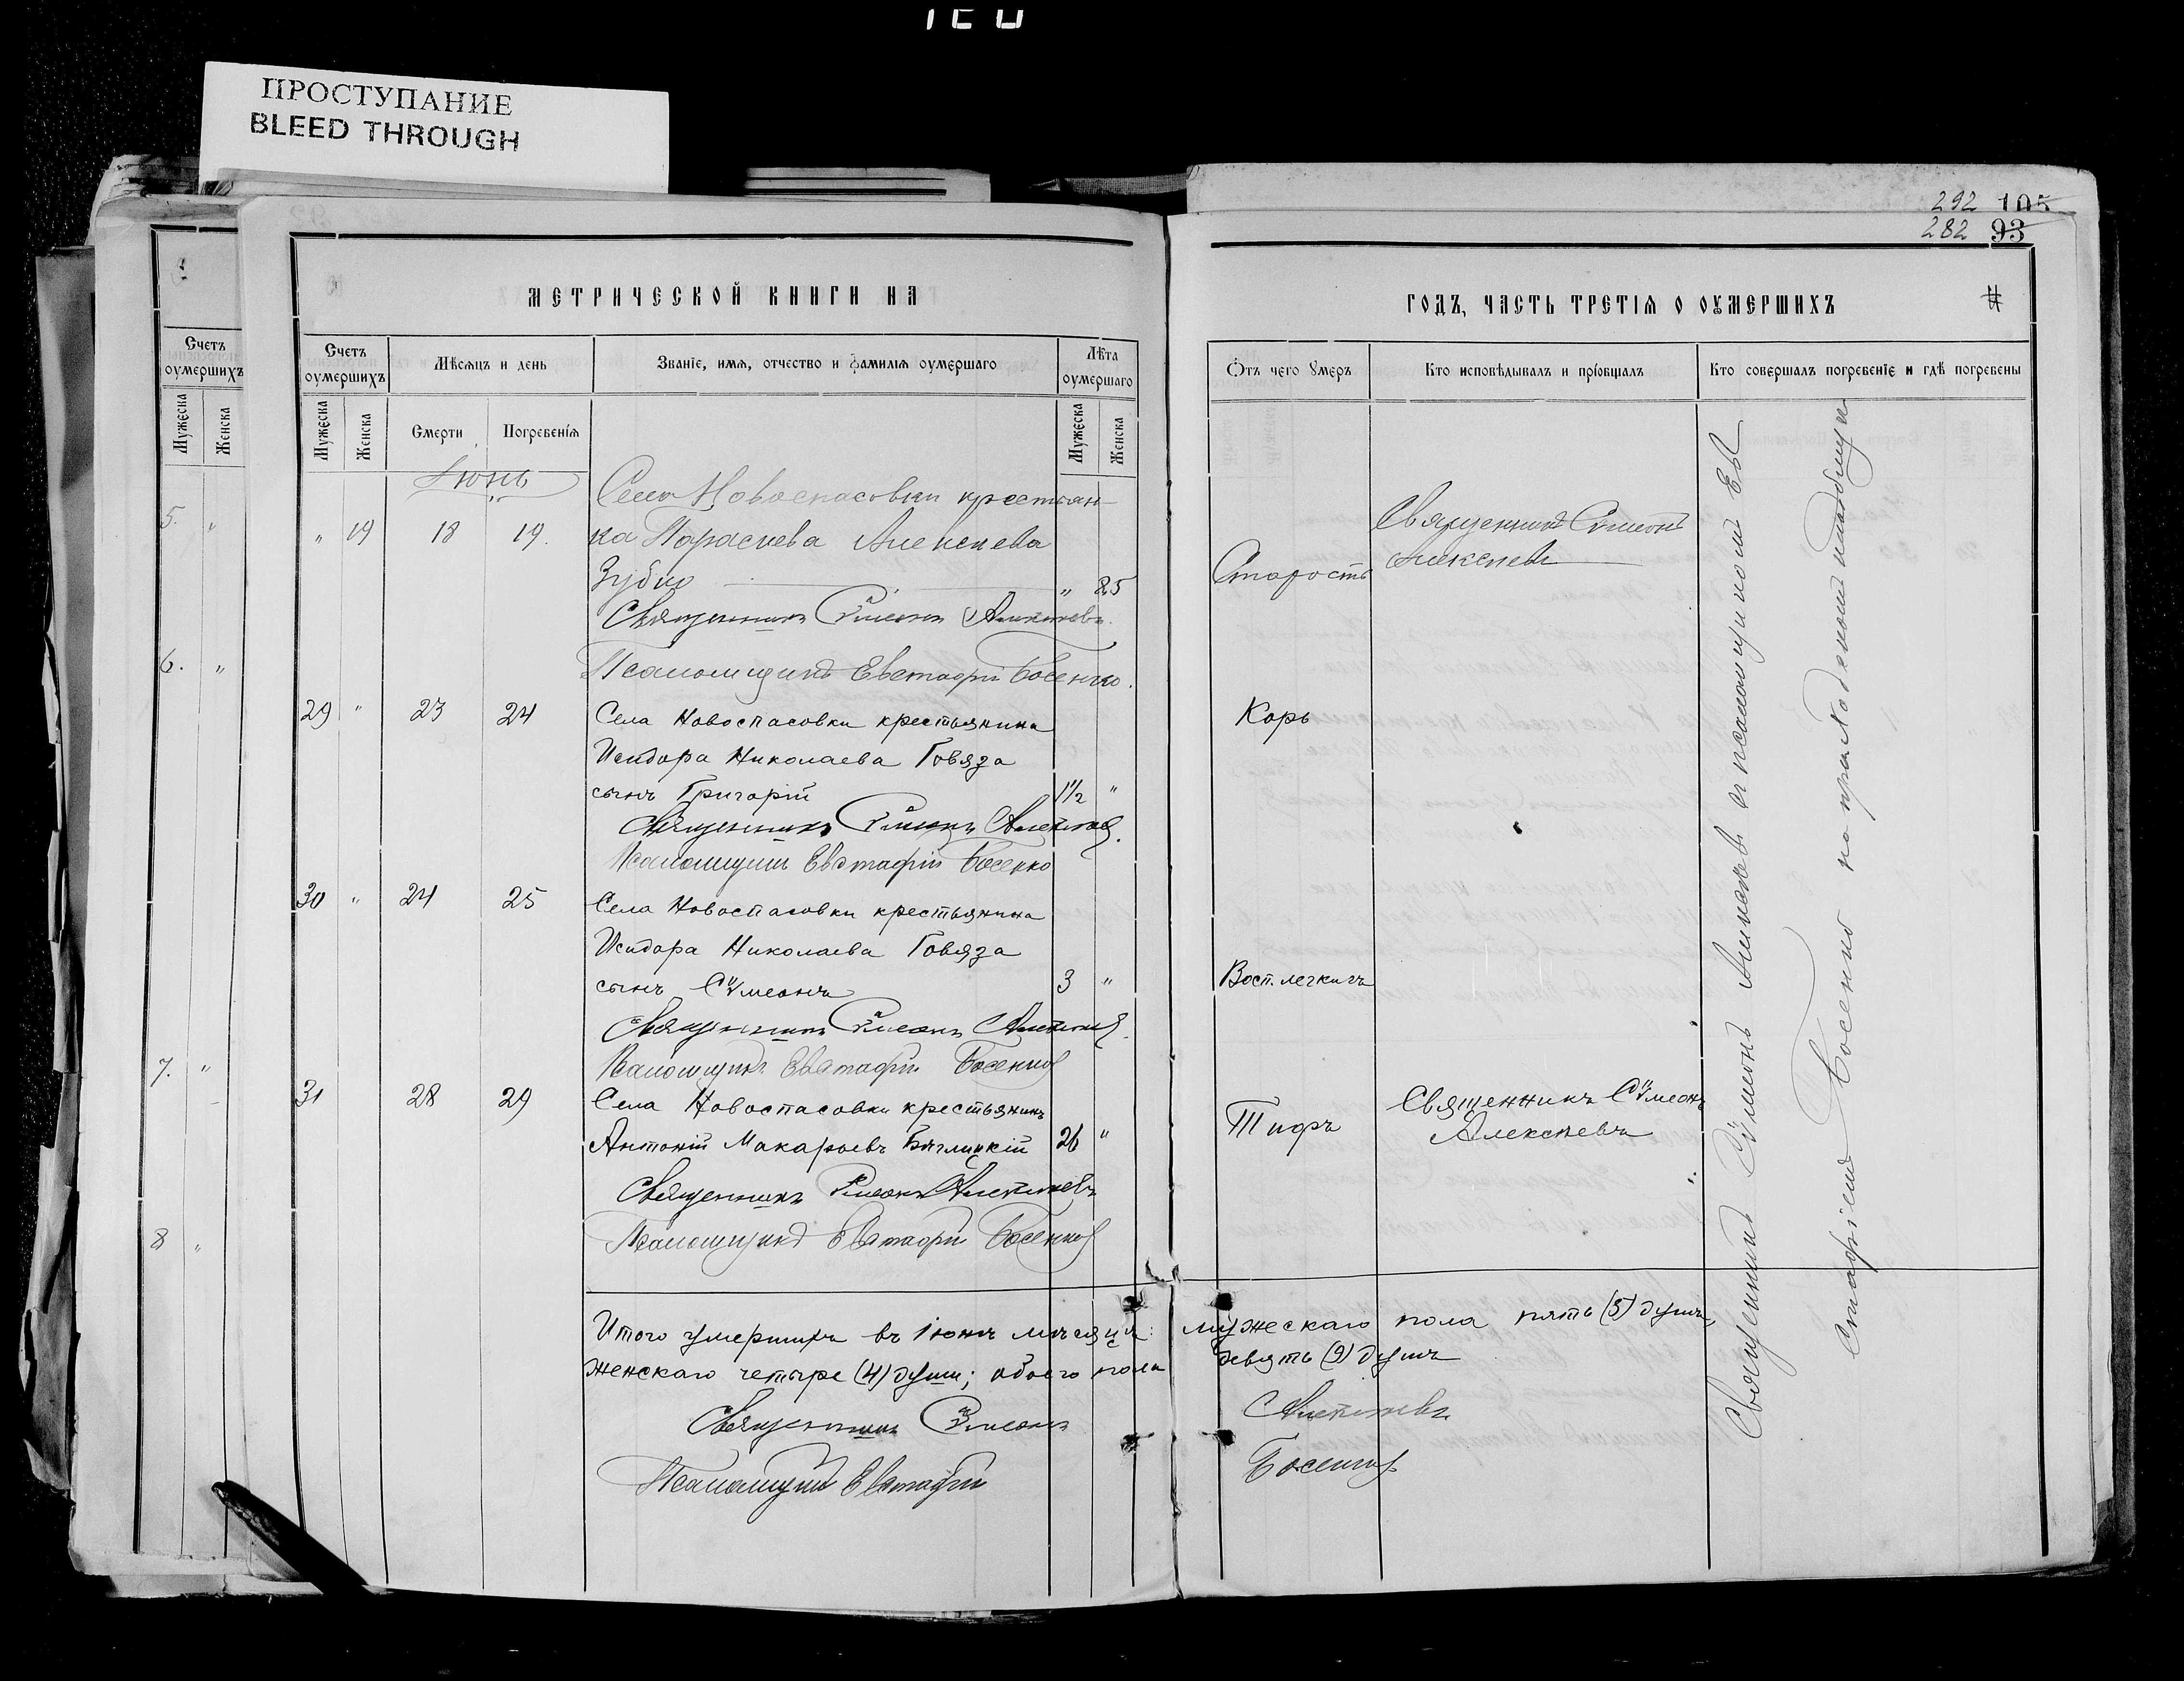 ПРОСТУПАНИЕ
BLEED THROUGH
292 105
282 93
МЕТРИЧЕСКОЙ КНИГИ НА
ГОДЪ, ЧАСТЬ ТРЕТІЯ О ОУМЕРШИХЪ
Счетъ оумершихъ
Мужеска
Женска
5. "
6. "
7. "
8 "
Счетъ оумершихъ
Мѣсяцъ и день
Званіе, имя, отчество и фамилія оумершаго
Лѣта оумершаго
Отъ чего умеръ
Кто исповѣдывалъ и пріобщалъ
Кто совершалъ погребеніе и гдѣ погребены
Мужеска
Женска
Смерти
Погребенія
Мужеска
Женска
Іюнь
Села Новоспасовки крестьян-
" 19 18 19. ка Параскева Алексѣева
Зубко " 85
Старость
Священникъ Сѵмеонъ
Алексѣевъ
Священникъ Сѵмеонъ Алексѣевъ.
Псаломщикъ Евстафій Босенко.
29 " 23 24 Села Новоспасовки крестьянина
Корь
Исидора Николаева Говяза
сынъ Григорій 1½ "
Священникъ Сѵмеонъ Алексѣевъ.
Псаломщикъ Евстафій Босенко
30 " 24 25 Села Новоспасовки крестьянина
Исидора Николаева Говяза
сынъ Сѵмеонъ 3 "
Восп. легкихъ
Священникъ Сѵмеонъ Алексѣевъ.
Псаломщикъ Евстафій Босенко
31 28 29 Села Новоспасовки крестьянинъ
Антоній Макарьевъ Бѣглицкій 26 "
Тифъ
Священникъ Сѵмеонъ
Алексѣевъ
Священникъ Сѵмеонъ Алексѣевъ
Псаломщикъ Евстафій Босенко
Священникъ Сѵмеонъ Алексѣевъ съ псаломщикомъ Ев
стафіемъ Босенко на приходскомъ кладбищѣ
Итого умершихъ въ Іюнѣ мѣсяцѣ: мужескаго пола пять (5) душъ,
женскаго четыре (4) души; обоего пола девять (9) душъ
Священникъ Сѵмеонъ Алексѣевъ
Псаломщикъ Евстафій Босенко